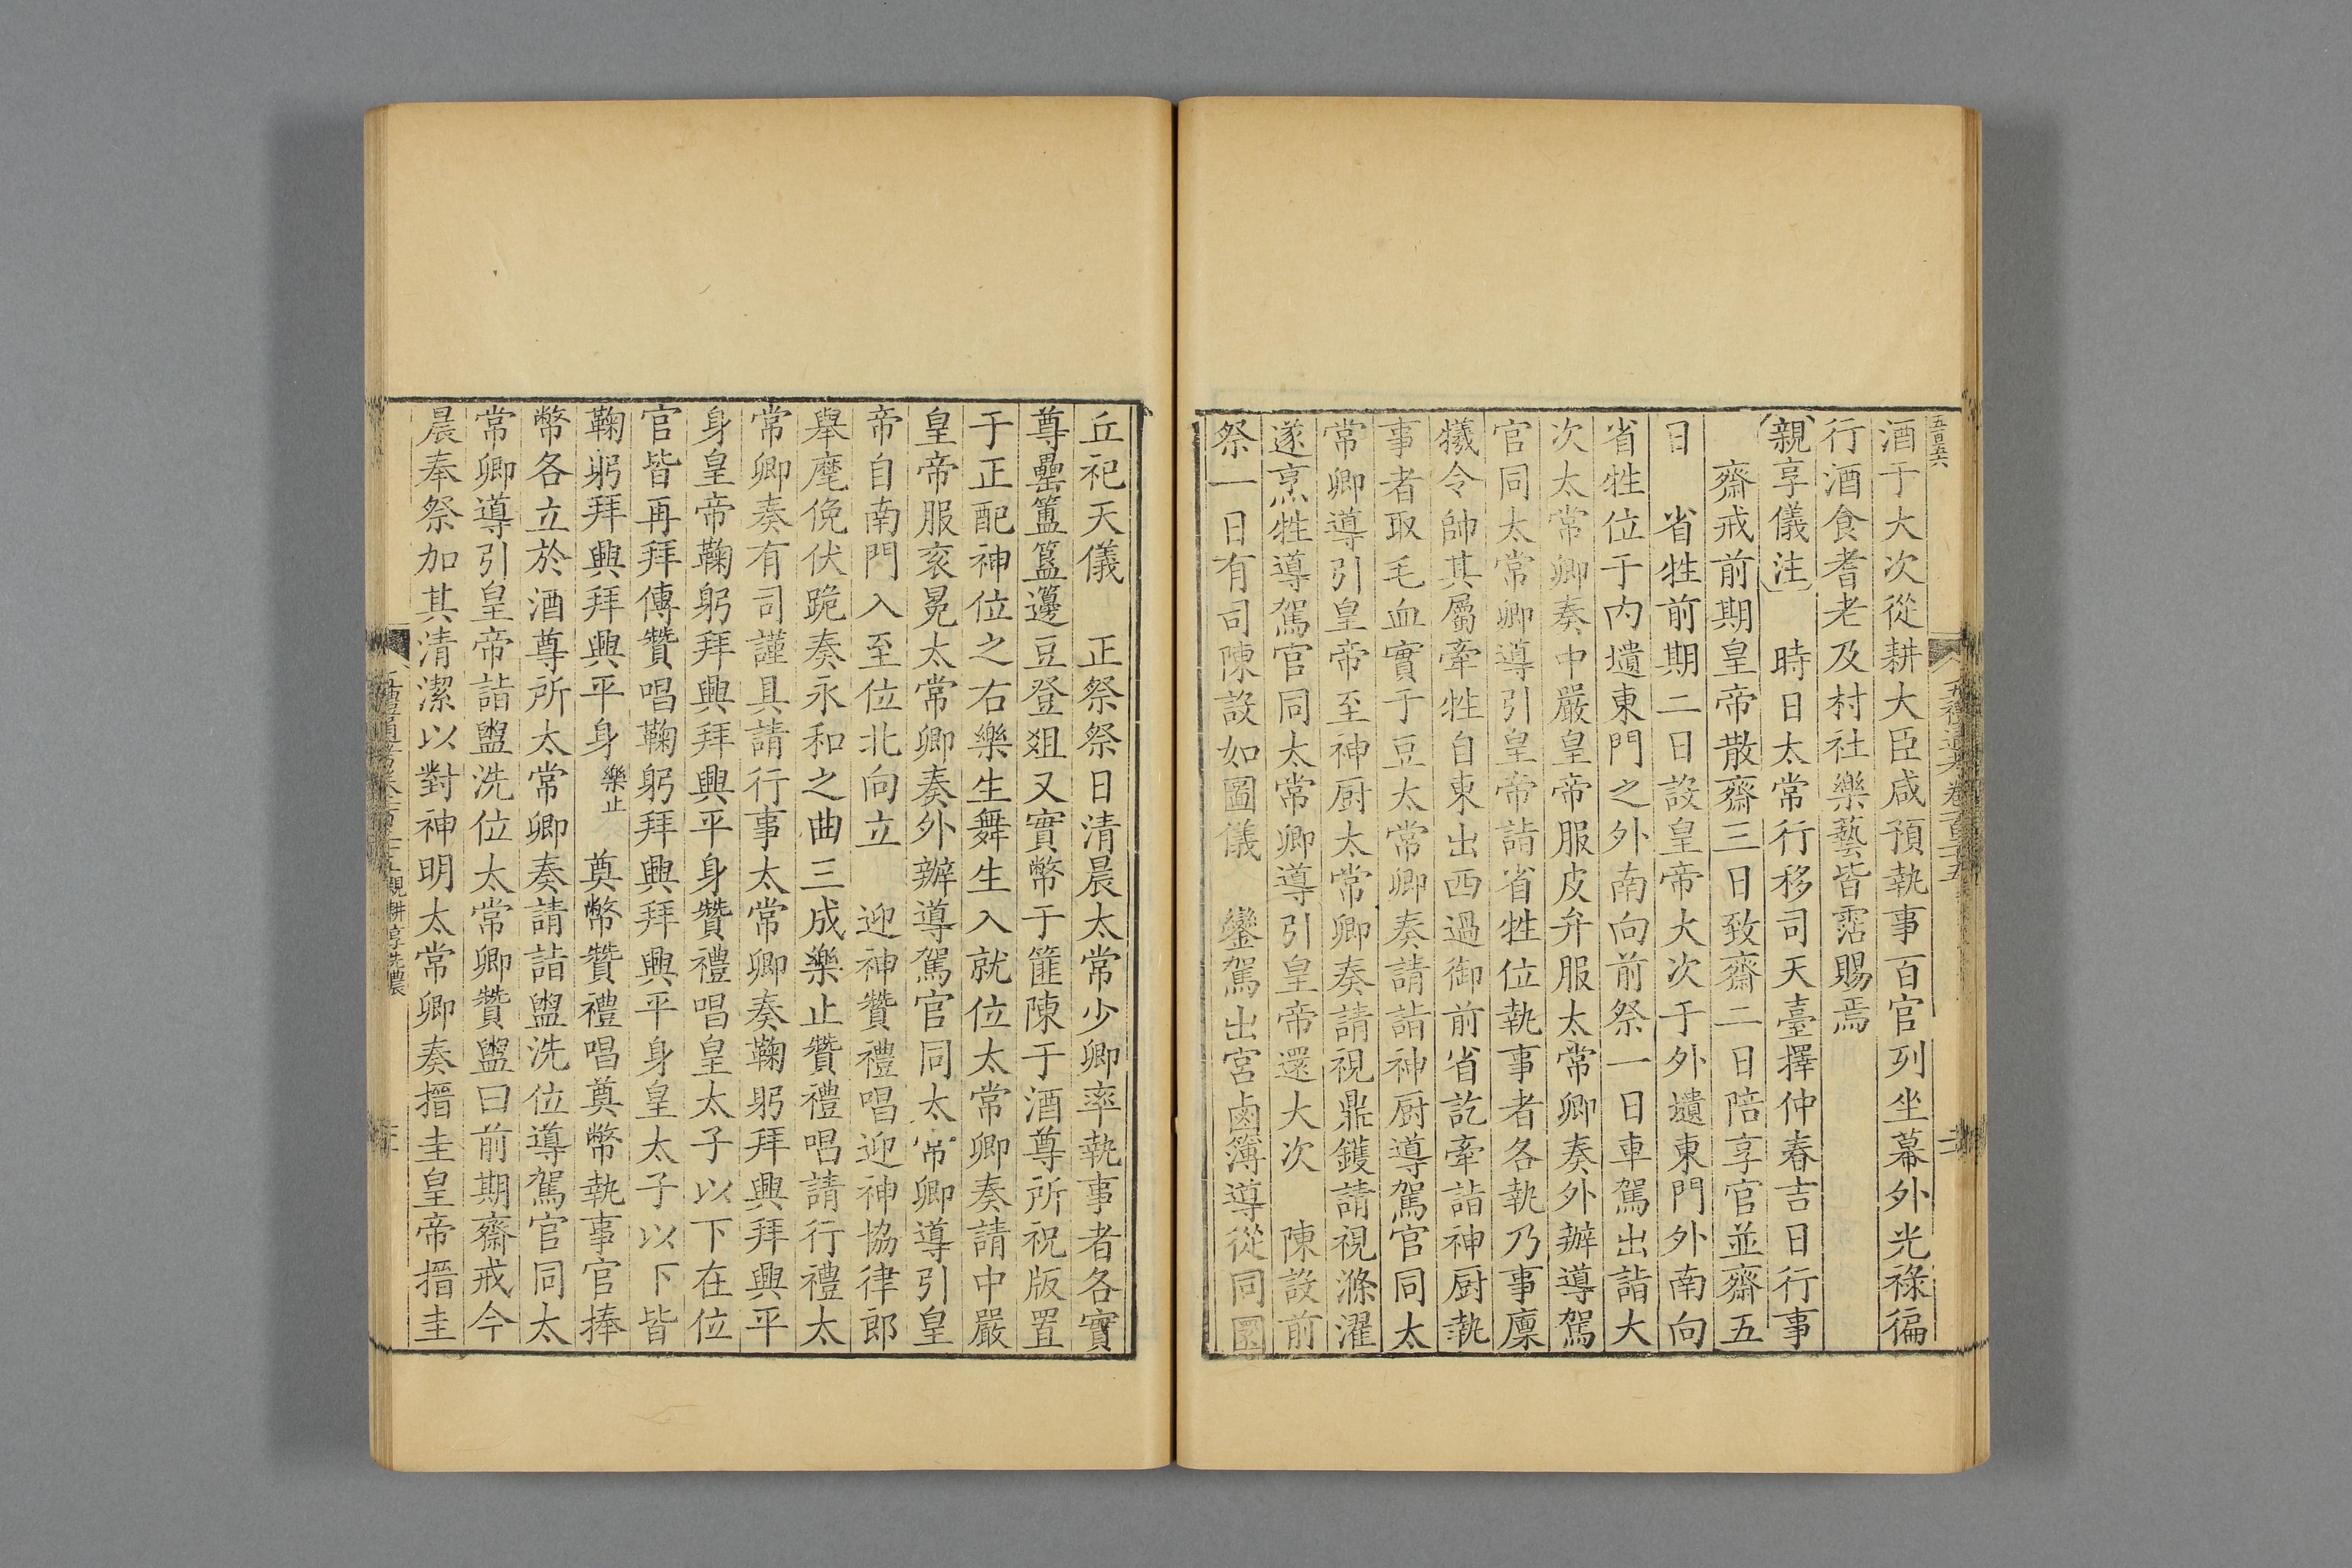 五百五六
酒于大次從耕大臣咸預執事百官列坐幕外光祿徧
行酒食耆老及村社樂藝皆霑賜焉
親享儀注　時日太常行移司天臺擇仲春吉日行事
齋戒前期皇帝散齋三日致齋二日陪享官並齋五
日　省牲前期二日設皇帝大次于外壝東門外南向
省牲位于内壝東門之外南向前祭一日車駕出詣大
次太常卿奏中嚴皇帝服皮弁服太常卿奏外辦導駕
官同太常卿導引皇帝詣省牲位執事者各執乃事廩
犧令帥其屬牽牲自東出西過御前省訖牽詣神厨執
事者取毛血實于豆太常卿奏請詣神厨導駕官同太
常卿導引皇帝至神厨太常卿奏請視鼎鑊請視滌濯
遂烹牲導駕官同太常卿導引皇帝還大次　陳設前
祭一日有司陳設如圖儀　鑾駕出宮鹵簿導從同圜
丘祀天儀　正祭祭日清晨太常少卿率執事者各實
尊罍簠簋籩豆登俎又實幣于篚陳于酒尊所祝版置
于正配神位之右樂生舞生入就位太常卿奏請中嚴
皇帝服衮冕太常卿奏外辦導駕官同太常卿導引皇
帝自南門入至位北向立　迎神贊禮唱迎神協律郎
舉麾俛伏跪奏永和之曲三成樂止贊禮唱請行禮太
常卿奏有司謹具請行事太常卿奏鞠躬拜興拜興平
身皇帝鞠躬拜興拜興平身贊禮唱皇太子以下在位
官皆再拜傳贊唱鞠躬拜興拜興平身皇太子以下皆
鞠躬拜興拜興平身樂止　奠幣贊禮唱奠幣執事官捧
幣各立於酒尊所太常卿奏請詣盥洗位導駕官同太
常卿導引皇帝詣盥洗位太常卿贊盥曰前期齋戒今
晨奉祭加其清潔以對神明太常卿奏搢圭皇帝搢圭
親耕享先農